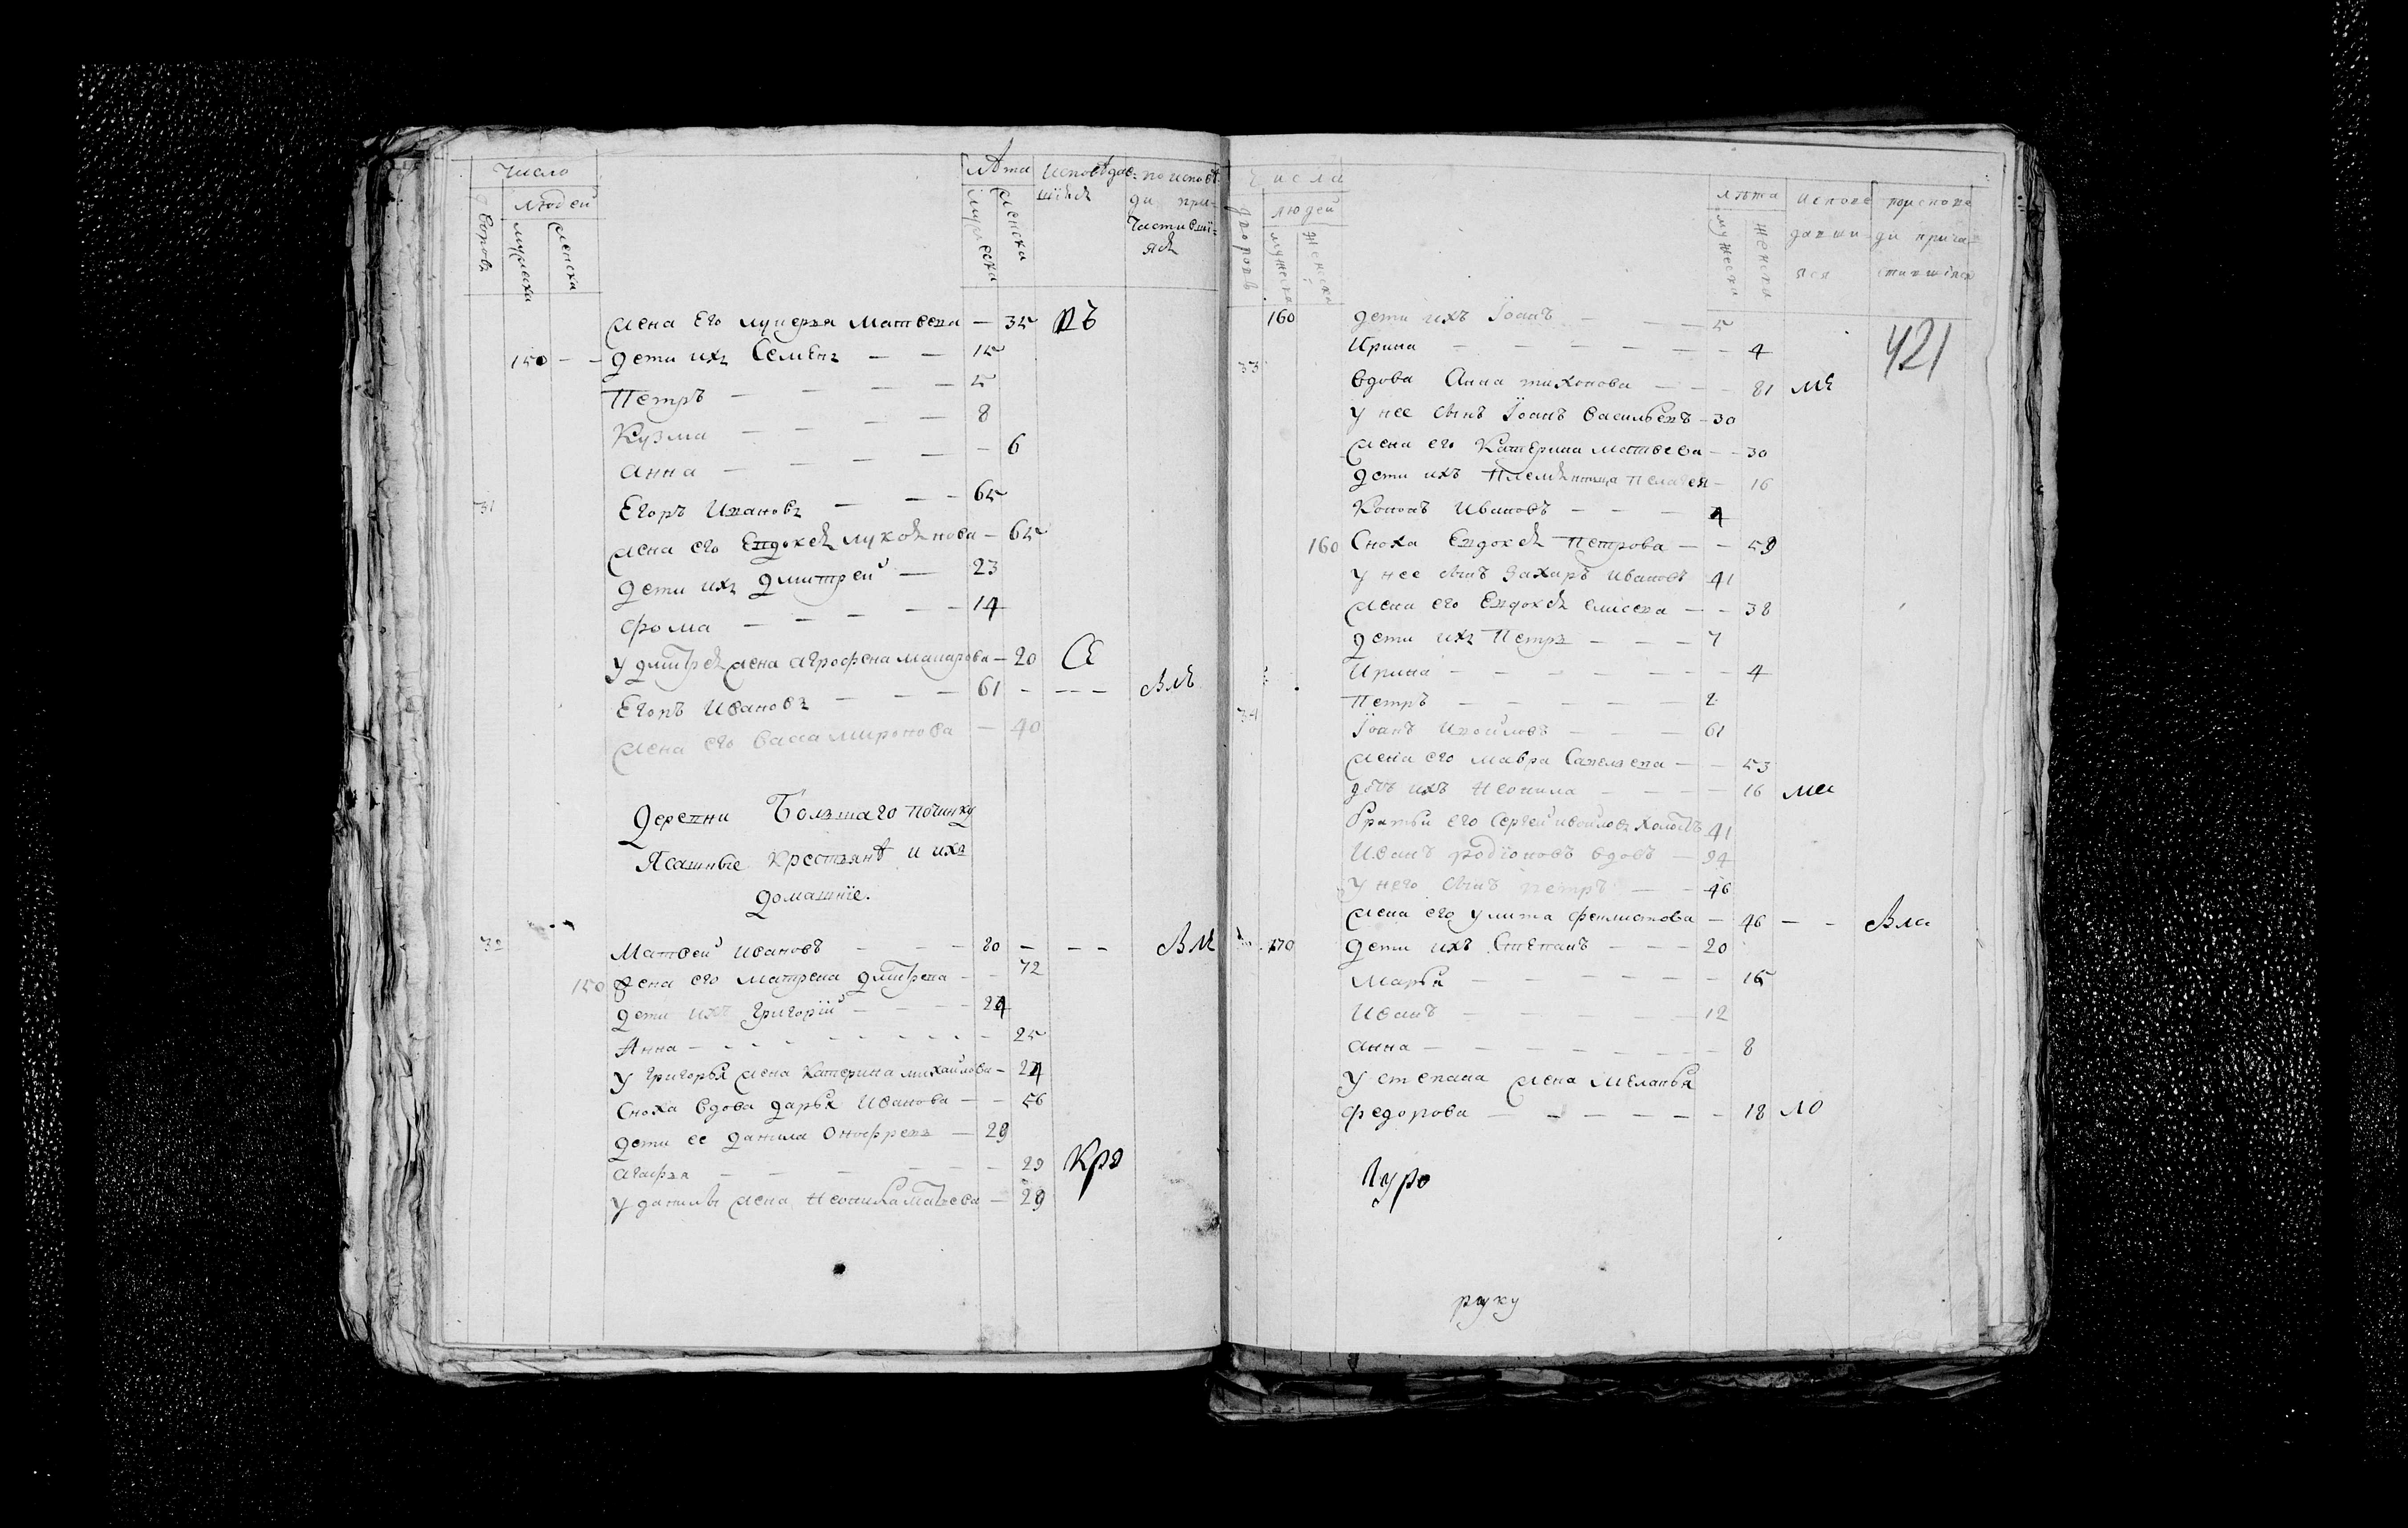 Число
людей
дворовъ
мужеска
женска
лѣта
мужеска
женска
исповѣдав=
шїяся
по исповѣ
ди при=
частившї=
яся
жена Его лукерья Матвева — 35 ВЪ
150 — — дети ихъ Семенъ — — 15
Петръ — — — — 5
Кузма — — — — 8
анна — — — — — 6
31 Егоръ Ивановъ — — — 65
жена его Евдокея лукоянова — 65
дети ихъ дмитрей — 23
фома — — — — — 14
у дмитрея жена агрофена макарова — 20
Егоръ Ивановъ — — — 61 — — — — ВЛЪ
жена его Васа миронова — 40
Деревни Большаго починку
Ясашные крестьянѣ и ихъ
домашнїе.
32 Матвей Ивановъ — — — 80 — — — ВМ
150 жена его матрена дмитрева — — 72
дети ихъ григорїй — — — 24
Анна — — — — — — — — 25
у григорья жена Катерина михаилова — 24
сноха вдова дарья Иванова — — 56
дети ее данила Онофревъ — 29
агафья — — — — — — 23 Кро
у данилы жена Неонила матвева — 29
числа
людей
дворовъ
мужеска
женска
лѣта
мужеска
женска
испове
давши
яся
по испове
ди прича
ставшїяся
421
160 дети ихъ Їоанъ — — — 5
Ирина — — — — — — 4
33 вдова Анна тихонова — — — 81 МЕ
у нее сынъ Їоанъ васильевъ — 30
жена его Катерина матвеева — — 30
дети ихъ племянница пелагея — 16
Кононъ Ивановъ — — — 4
160 Сноха Евдокея Петрова — — 59
у нее сынъ Захаръ Ивановъ 41
жена его Евдокея елисева — — 38
дети ихъ Петръ — — — 7
Ирина — — — — — — — 4
Петръ — — — — — 2
34 Їоанъ Ивойловъ — — — 61
жена его мавра Савельева — — 53
дочь ихъ Неонила — — — — 16 Ма
братьи его Сергей ивойловъ холостъ 41
Иванъ родїоновъ вдовъ — 94
у него сынъ петръ — — 46
жена его улита феклистова — 46 — — Вла
170 дети ихъ Степанъ — — — 20
Марья — — — — — — 15
Иванъ — — — — — 12
анна — — — — — — — 8
у степана жена Меланья
федорова — — — — — — 18 ЛО
руку